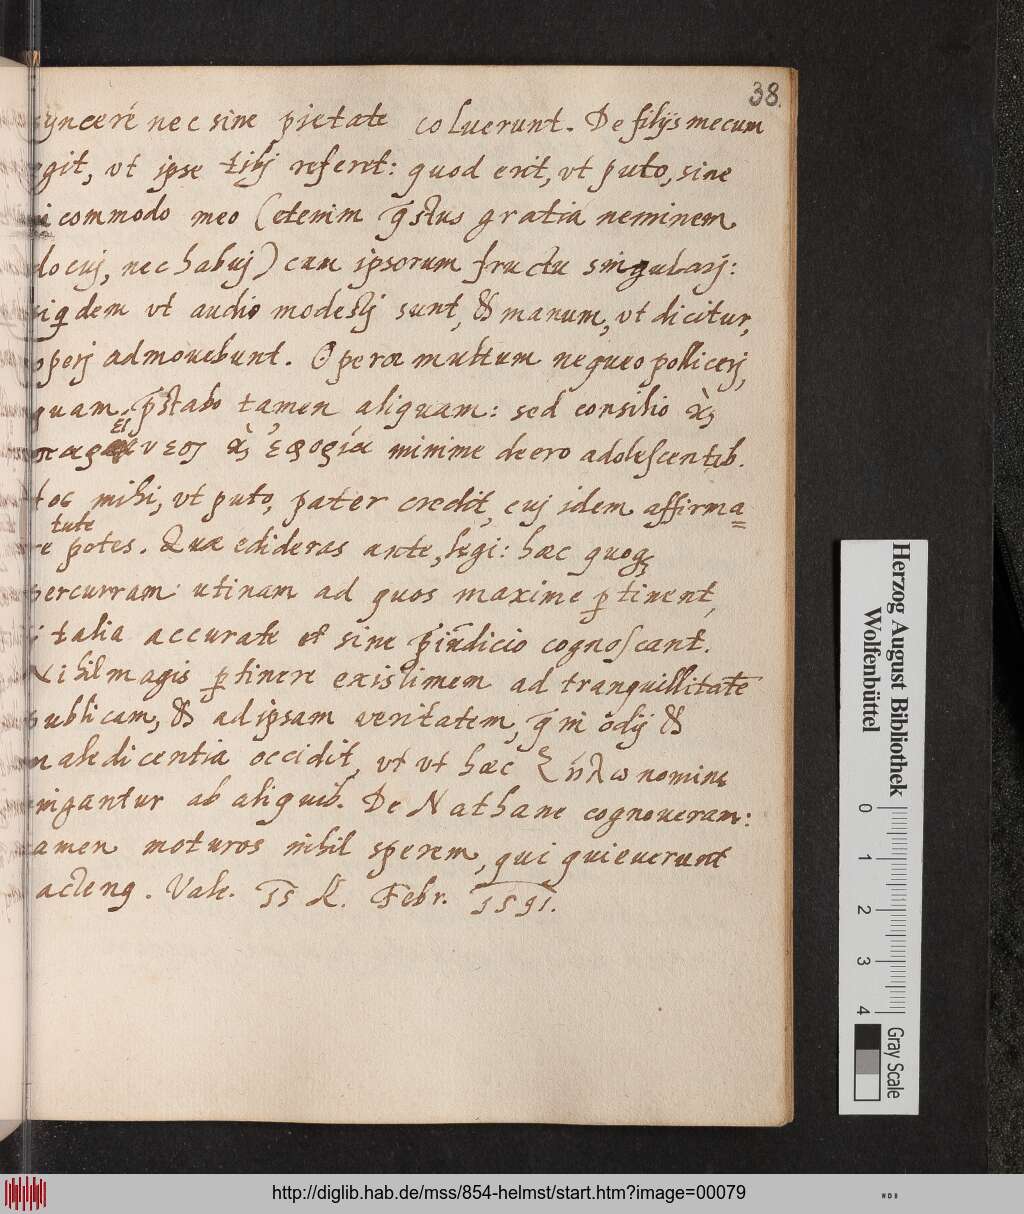 38.
synceré nec sine pietate coluerunt. De filijs mecum
egit, vt ipse tibj referet: quod erit, vt puto, sine
commodo meo (etenim q̄stus gratia neminem
docuj, nec habuj) cum ipsorum fructu singularj:
siqdem vt audio modestj sunt, & manum, vt dicitur,
operj admouebunt. Operæ multum nequeo pollicerj,
quam p̄stabo tamen aliquam: sed consilio
ἐφορία minime deero adolescentib.
hoc mihi, vt puto, pater credit, cuj idem affirma=
tute
re potes. Quæ edideras ante, legi: hæc quoq;
percurram: utinam ad quos maxime ptinent,
talia accurate et sine p̄iudicio cognoscant.
Nihil magis ptinere existimem ad tranquillitatē
publicam, & ad ipsam veritatem, q̄ in ōdij &
maledicentia occidit, vt vt hæc ζήλω nomine
pingantur ab aliquib. De Nathane cognoueram:
tamen moturos nihil sperem, qui quieuerunt
hactenq. Vale. 15 K. Febr. 1591.
Herzog August Bibliothek
Wolfenbüttel
0 1 2 3 4
Gray Scale
http://diglib.hab.de/mss/854-helmst/start.htm?image=00079